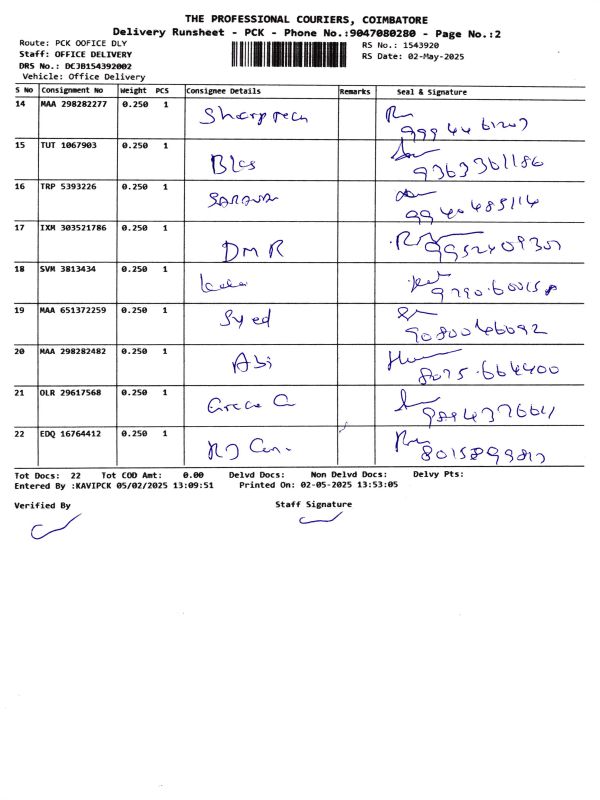 THE PROFESSIONAL COURIERS, COIMBATORE
Delivery Runsheet - PCK - Phone No.:9047080280 - Page No.:2
Route: PCK OOFICE DLY
RS No.: 1543920
Staff: OFFICE DELIVERY
RS Date: 02-May-2025
DRS No.: DCJB154392002
Vehicle: Office Delivery
S No Consignment No Weight PCS Consignee Details Remarks Seal & Signature
14 MAA 298282277 0.250 1 Sharptech
15 TUT 1067903 0.250 1 9363361186
16 TRP 5393226 0.250 1 9940485114
17 IXM 303521786 0.250 1 DMR 9952409307
18 SVM 3813434 0.250 1
19 MAA 651372259 0.250 1 Syed 9080046092
20 MAA 298282482 0.250 1 Abi 8075664400
21 OLR 29617568 0.250 1
22 EDQ 16764412 0.250 1
Tot Docs: 22 Tot COD Amt: 0.00 Delvd Docs: Non Delvd Docs: Delvy Pts:
Entered By :KAVIPCK 05/02/2025 13:09:51 Printed On: 02-05-2025 13:53:05
Verified By Staff Signature